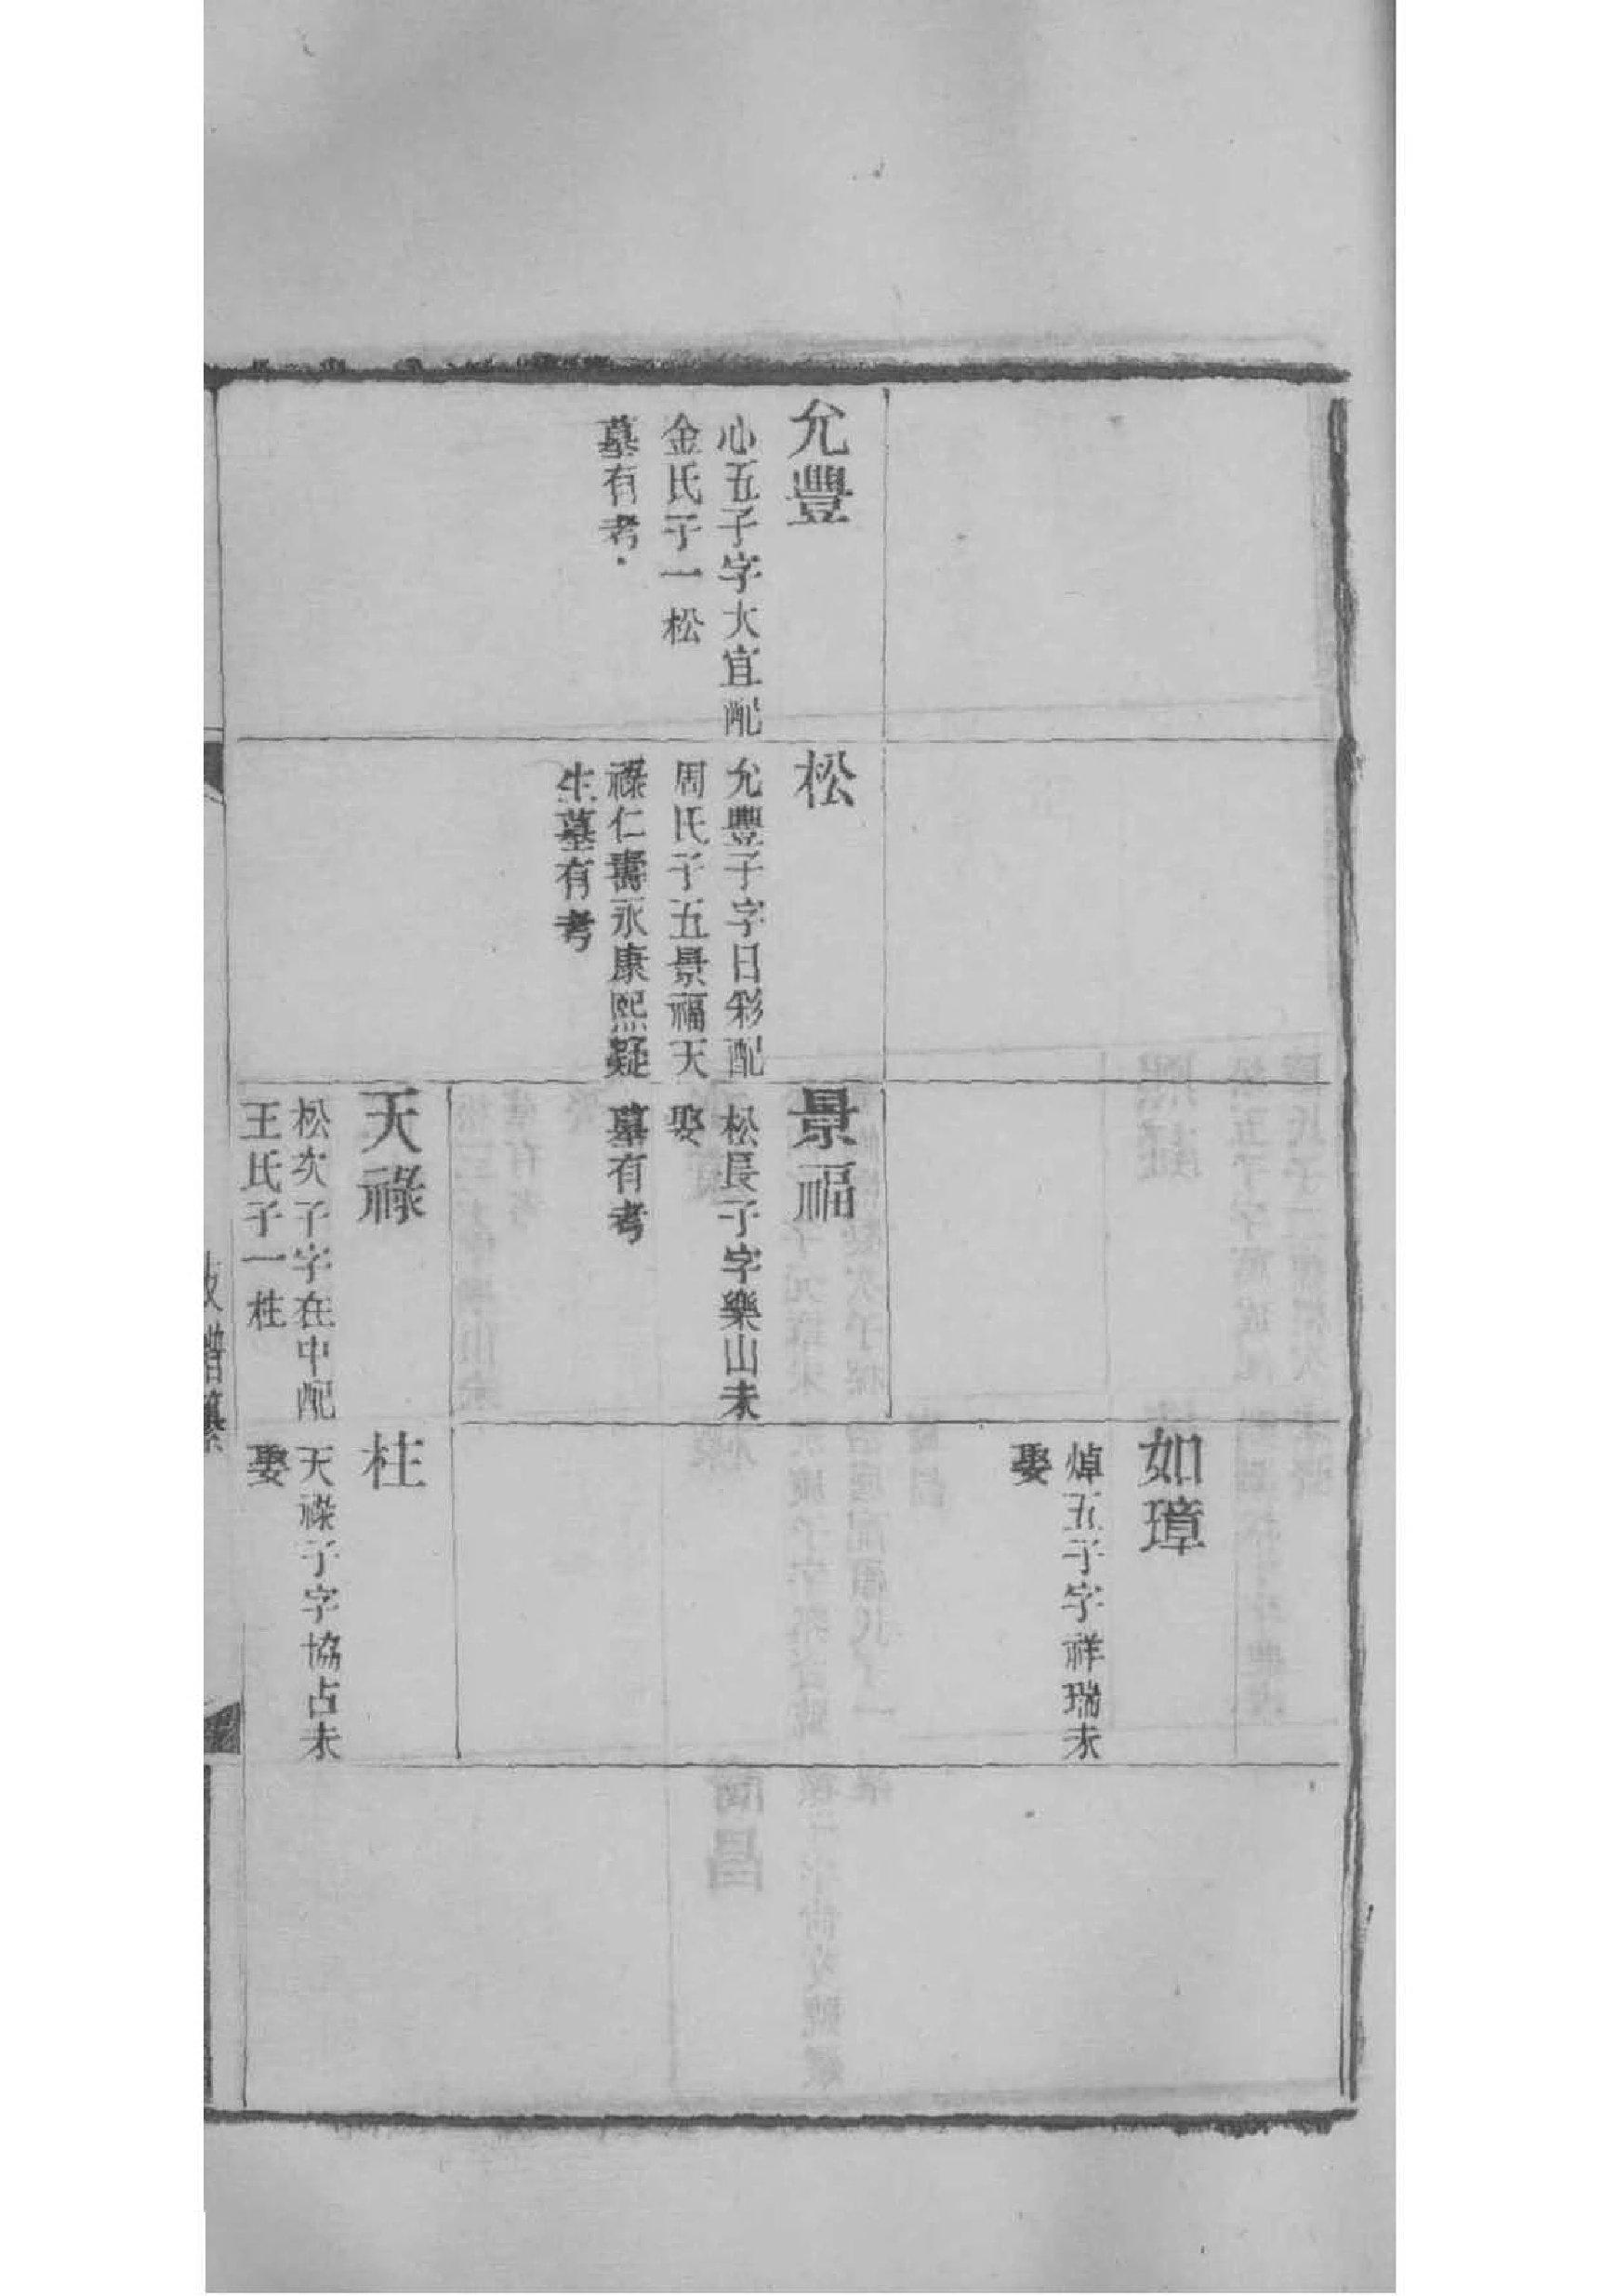 允豐
心五子字大宜配
金氏子一松
墓有考
松
允豐子字日彩配
周氏子五景福天
祿仁壽永康熙疑
生墓有考
如璋
焯五子字祥瑞未
娶
景福
松長子字樂山未
娶
墓有考
天祿
松次子字在中配
王氏子一柱
柱
天祿子字協占未
娶